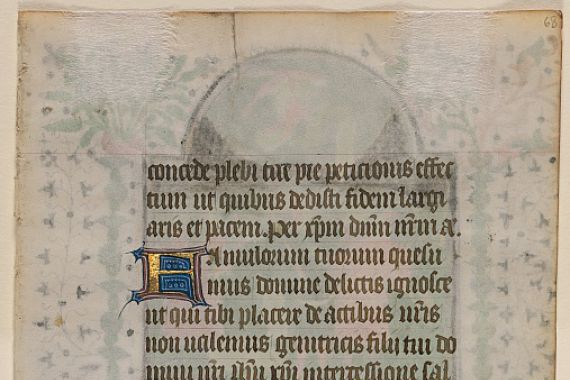 68
concede plebi tue pie peticionis effec
tum ut quibus dedisti fidem largi
aris et pacem. Per xp̄m dn̄m nr̄m ꝛc.
Famulorum tuorum quesu
mus domine delictis ignosce
ut qui tibi placere de actibus nr̄is
non ualemus genitricis filii tui do
mini nr̄i ih̄u xp̄i intercessione sal